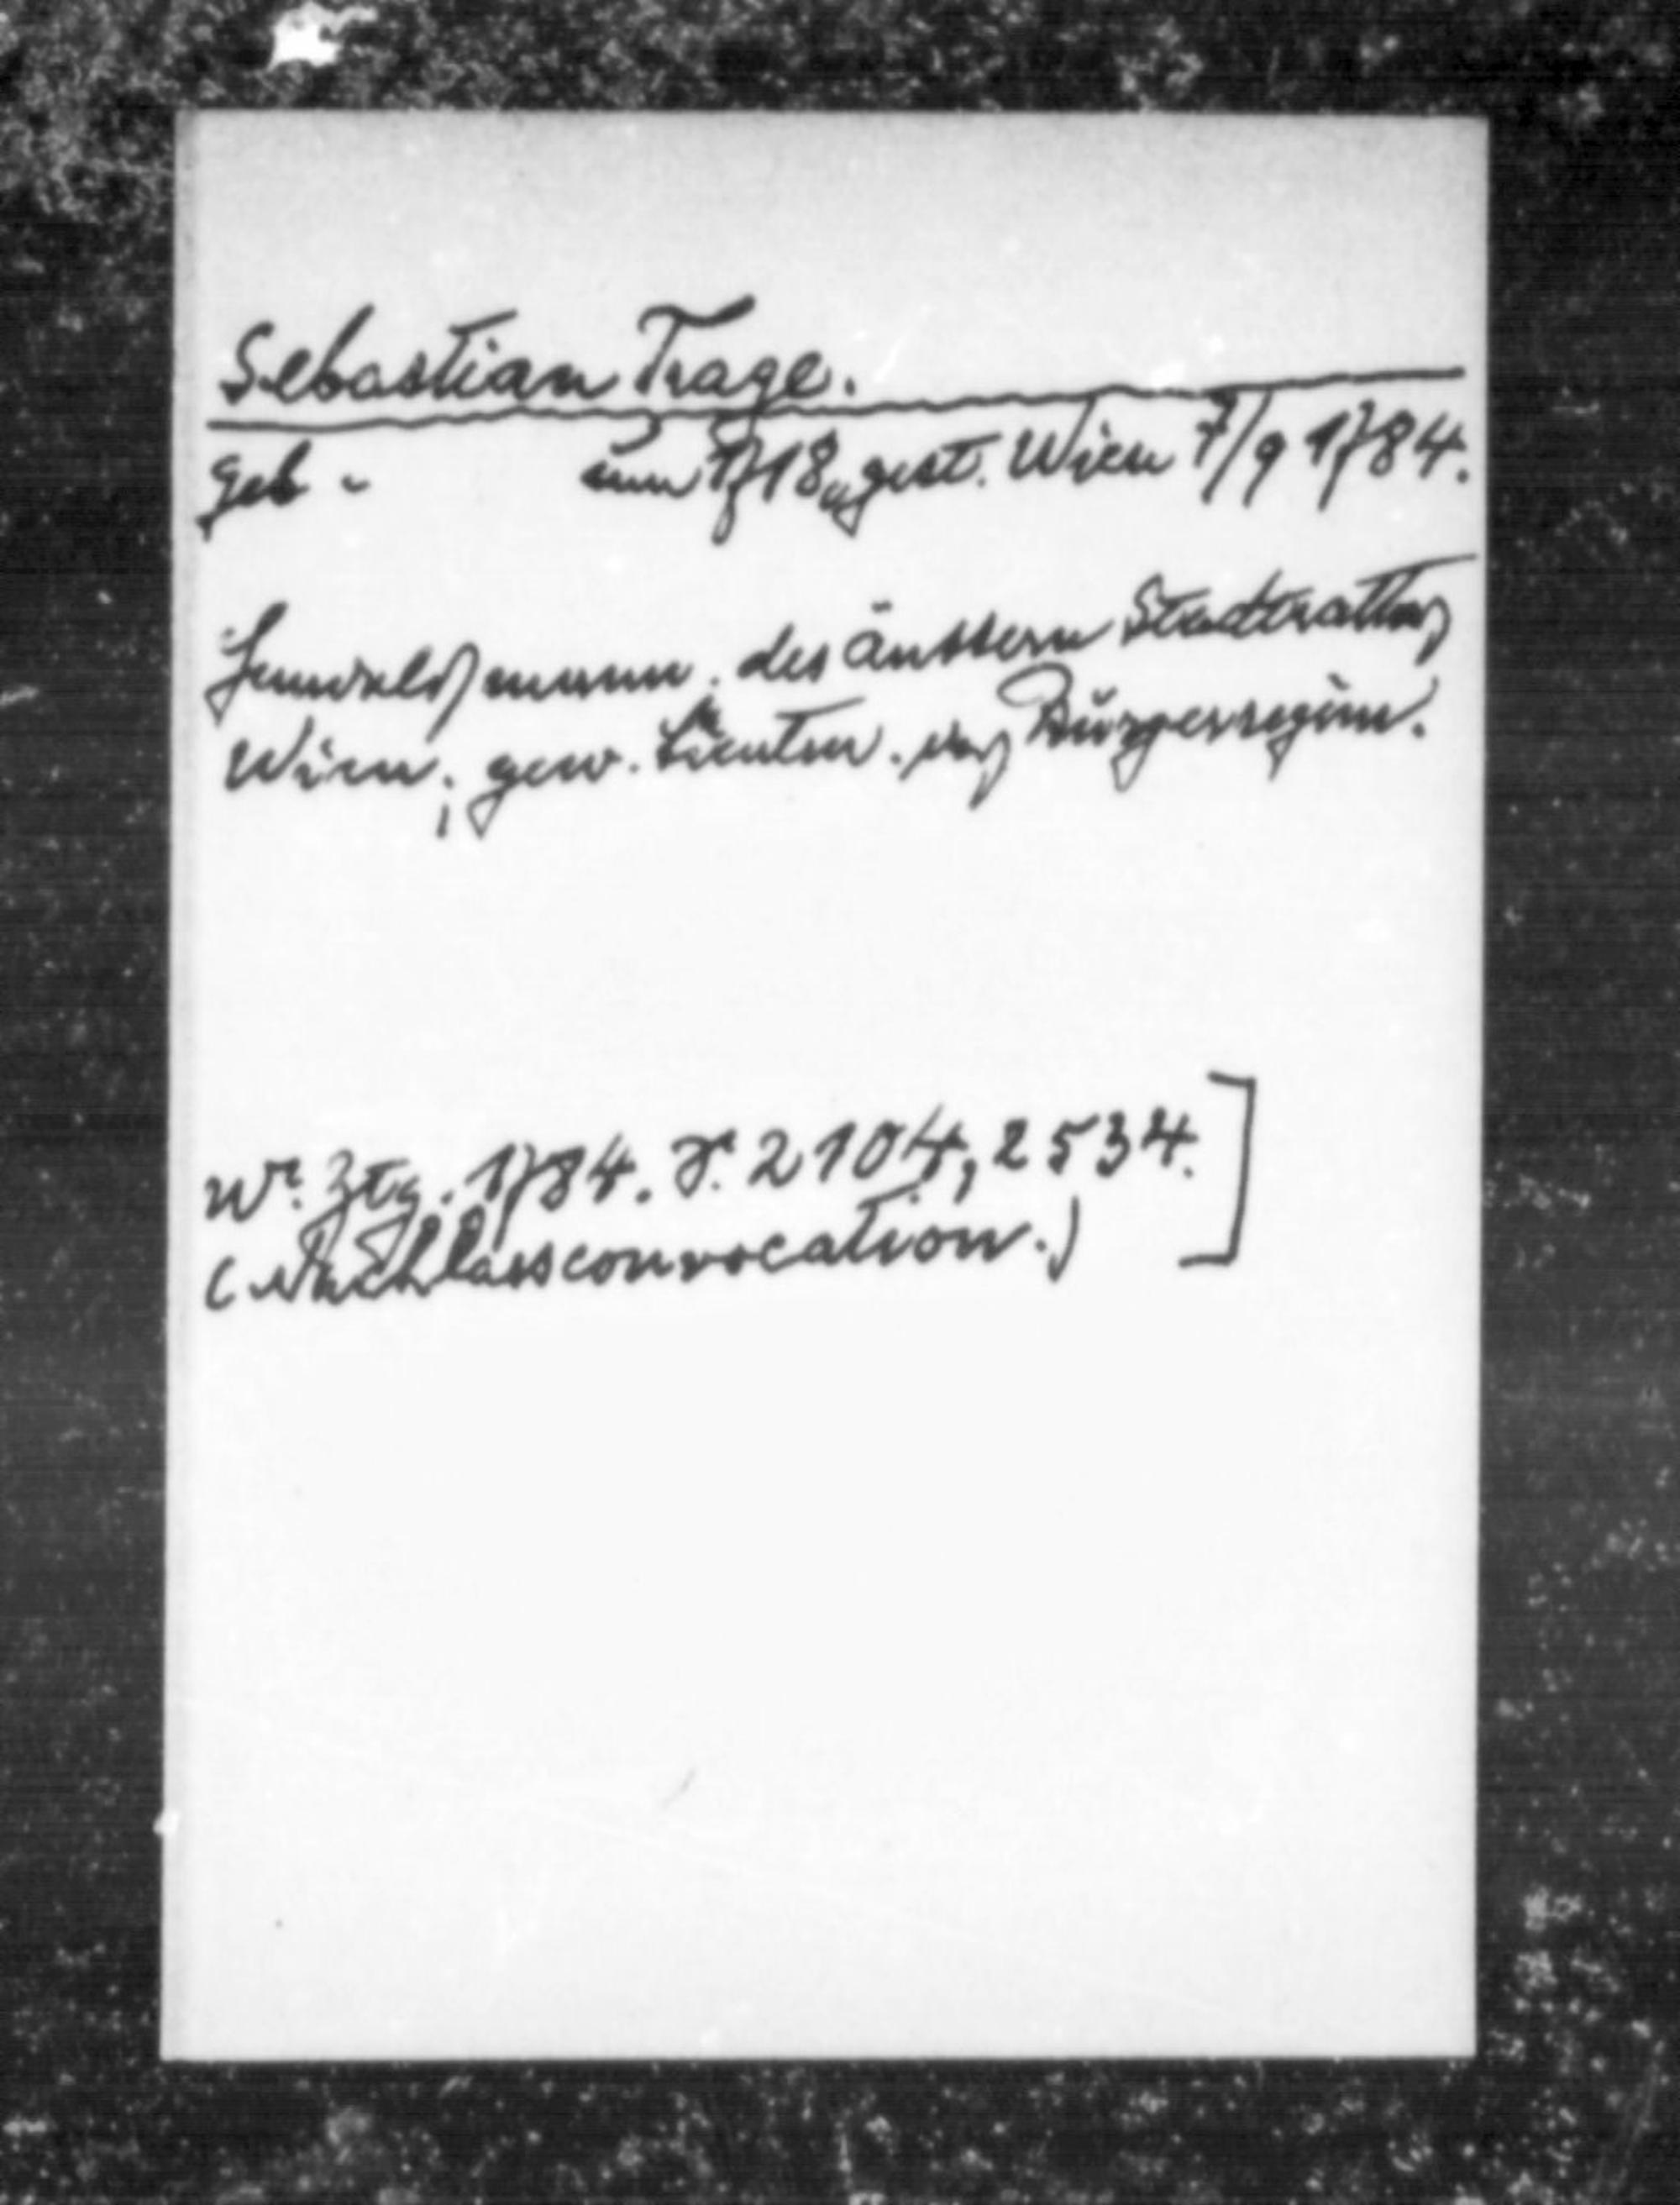 Sebastian Trage.
geb. um 1718, gest. Wien 7/9 1784.
Handelsmann. des äussern Stadtrathes
Wien; gew. Lieuten. des Bürgerregim.
Wr. Ztg. 1784. S. 2104, 2534.]
(Nachlassconvocation.)